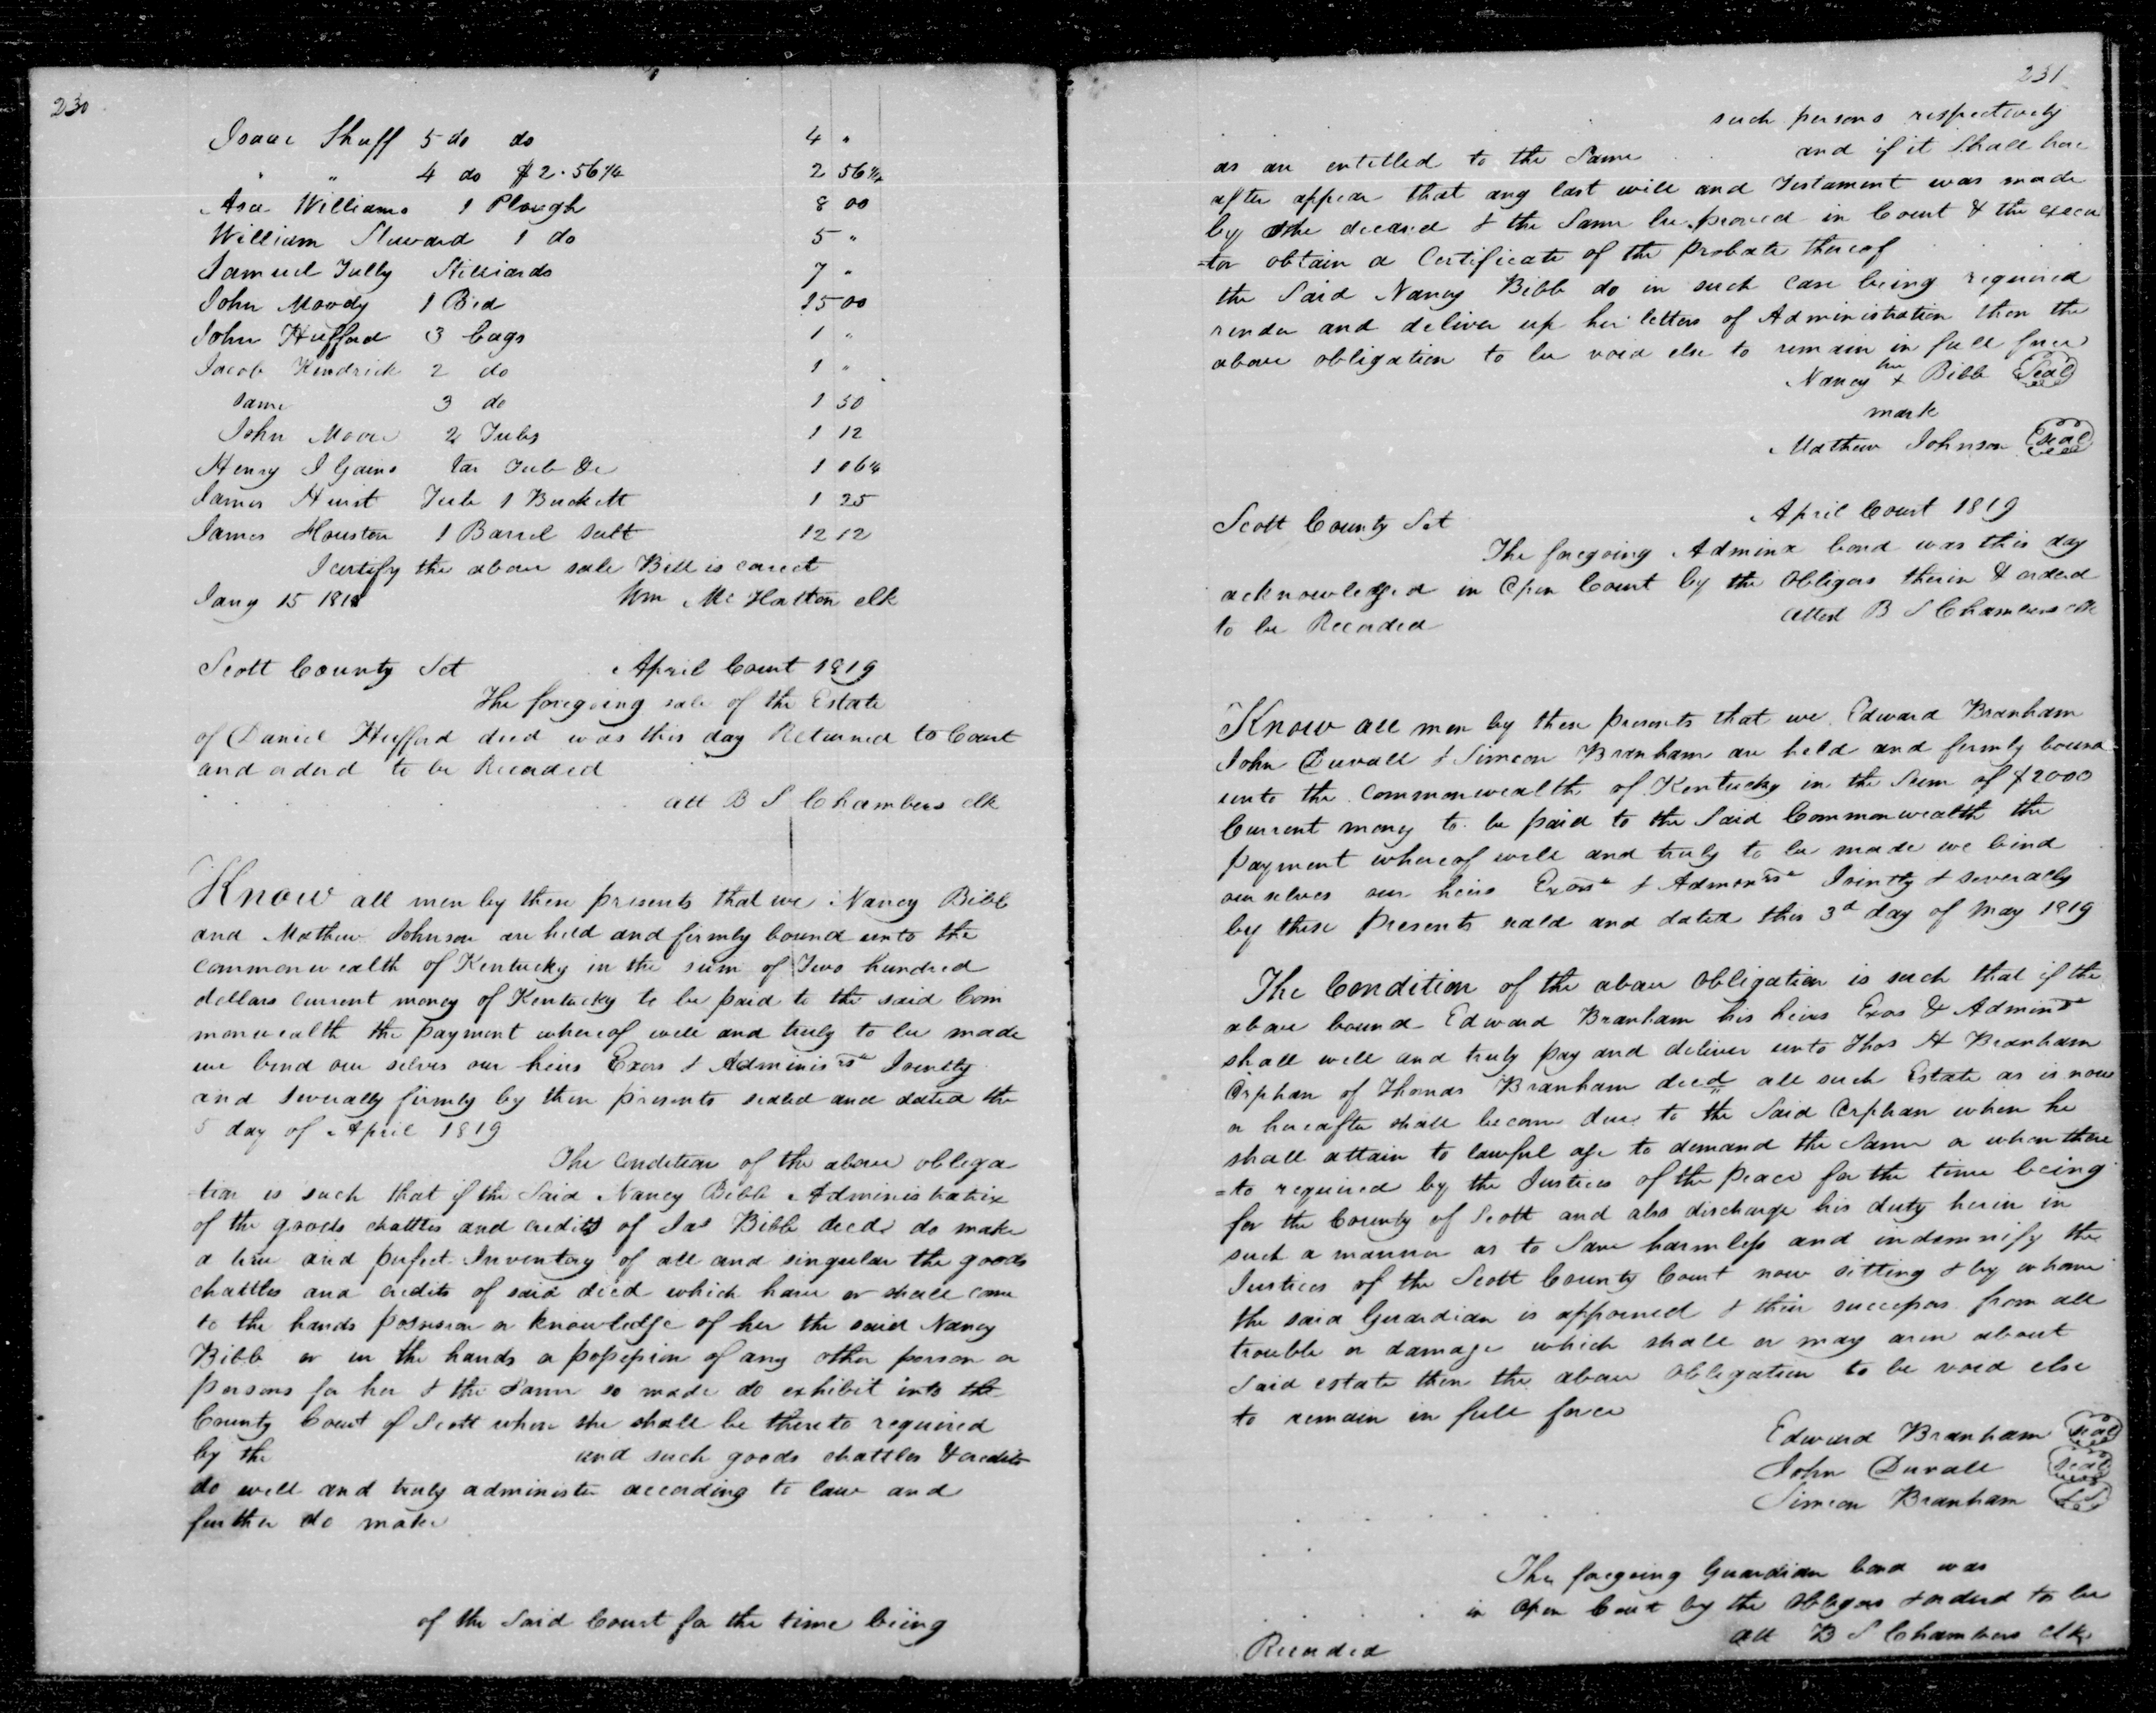 230
Isaac Shuff 5 do do 4 "
" " 4 do $2.56¼ 2 56¼
Asa Williams 1 Plough 8 00
William Steward 1 do 5 "
Samuel Tully Stilliards 7 "
John Moody 1 Bed 15 00
John Hufford 3 bags 1 "
Jacob Kendrick 2 do 1 "
same 3 do 1 50
John Moore 2 Tubs 1 12
Henry I Gains tar Tub &c 1 06¼
James Hurst Tub 1 Buckett 1 25
James Houston 1 Barrel salt 12 12
I certify the above sale Bill is corect
Jany 15 1818 Wm McHatton clk
Scott County Sct April Court 1819
The foregoing sale of the Estate
of Daniel Hufford decd was this day Returned to Court
and ordered to be Recorded
att B S Chambers clk
Know all men by these presents that we Nancy Bibb
and Mathew Johnson are held and firmly bound unto the
commonwealth of Kentucky in the sum of Two hundred
dollars current money of Kentucky to be paid to the said Com
monwealth the payment whereof well and truly to be made
we bind our selves our heirs Exors & Adminisrs Jointly
and severally firmly by these presents sealed and dated the
5 day of April 1819
The Condition of the above obliga
tion is such that if the Said Nancy Bibb Administratrix
of the goods chattles and credits of Jas Bibb decd do make
a true and perfect Inventory of all and singular the goods
chattles and credits of said decd which have or shall come
to the hands possession or knowledge of her the said Nancy
Bibb or in the hands or possession of any other person or
persons for her & the Same so made do exhibit into the
County Court of Scott when she shall be thereto required
by the and such goods chattles & credits
do well and truly administer according to law and
further do make
of the Said Court for the time being
231
such persons respectively
as are entitled to the Same and if it Shall here
after appear that any last will and Testament was made
by the deceased & the Same be proved in Court & the execu
=tor obtain a Certificate of the Probate thereof
the Said Nancy Bibb do in such case being required
render and deliver up her letters of Administration then the
above obligation to be void else to remain in full force
Nancy her x Bibb Seal
mark
Mathew Johnson seal
Scott County Sct April Court 1819
The foregoing Adminx bond was this day
acknowledged in Open Court by the Obligors therein & ordered
to be Recorded attest B S Chambers clk
Know all men by these presents that we Edward Branham
John Duvall & Simeon Branham are held and firmly bound
unto the Commonwealth of Kentucky in the Sum of $2000
Current money to be paid to the Said Commonwealth the
payment whereof well and truly to be made we bind
our selves our heirs Exors & Admonrs Jointly & severally
by these Presents seald and dated this 3d day of May 1819
The Condition of the above Obligation is such that if the
above bound Edward Branham his heirs Exos & Admins
shall well and truly pay and deliver unto Thos H Branham
Orphan of Thomas Branham decd all such Estate as is now
or hereafter shall become due to the Said Orphan when he
shall attain to lawful age to demand the Same or when there
=to required by the Justices of the Peace for the time being
for the County of Scott and also discharge his duty herin in
such a manner as to Save harmless and indemnify the
Justices of the Scott County Court now sitting & by whome
the said Guardian is appointed & their successors from all
trouble or damage which shall or may arise about
Said estate then the above Obligation to be void else
to remain in full force
Edward Branham seal
John Duvall seal
Simeon Branham LS
The foregoing Guardian bond was
in Open Court by the Obligors & orderd to be
Recorded att B S Chambers clk